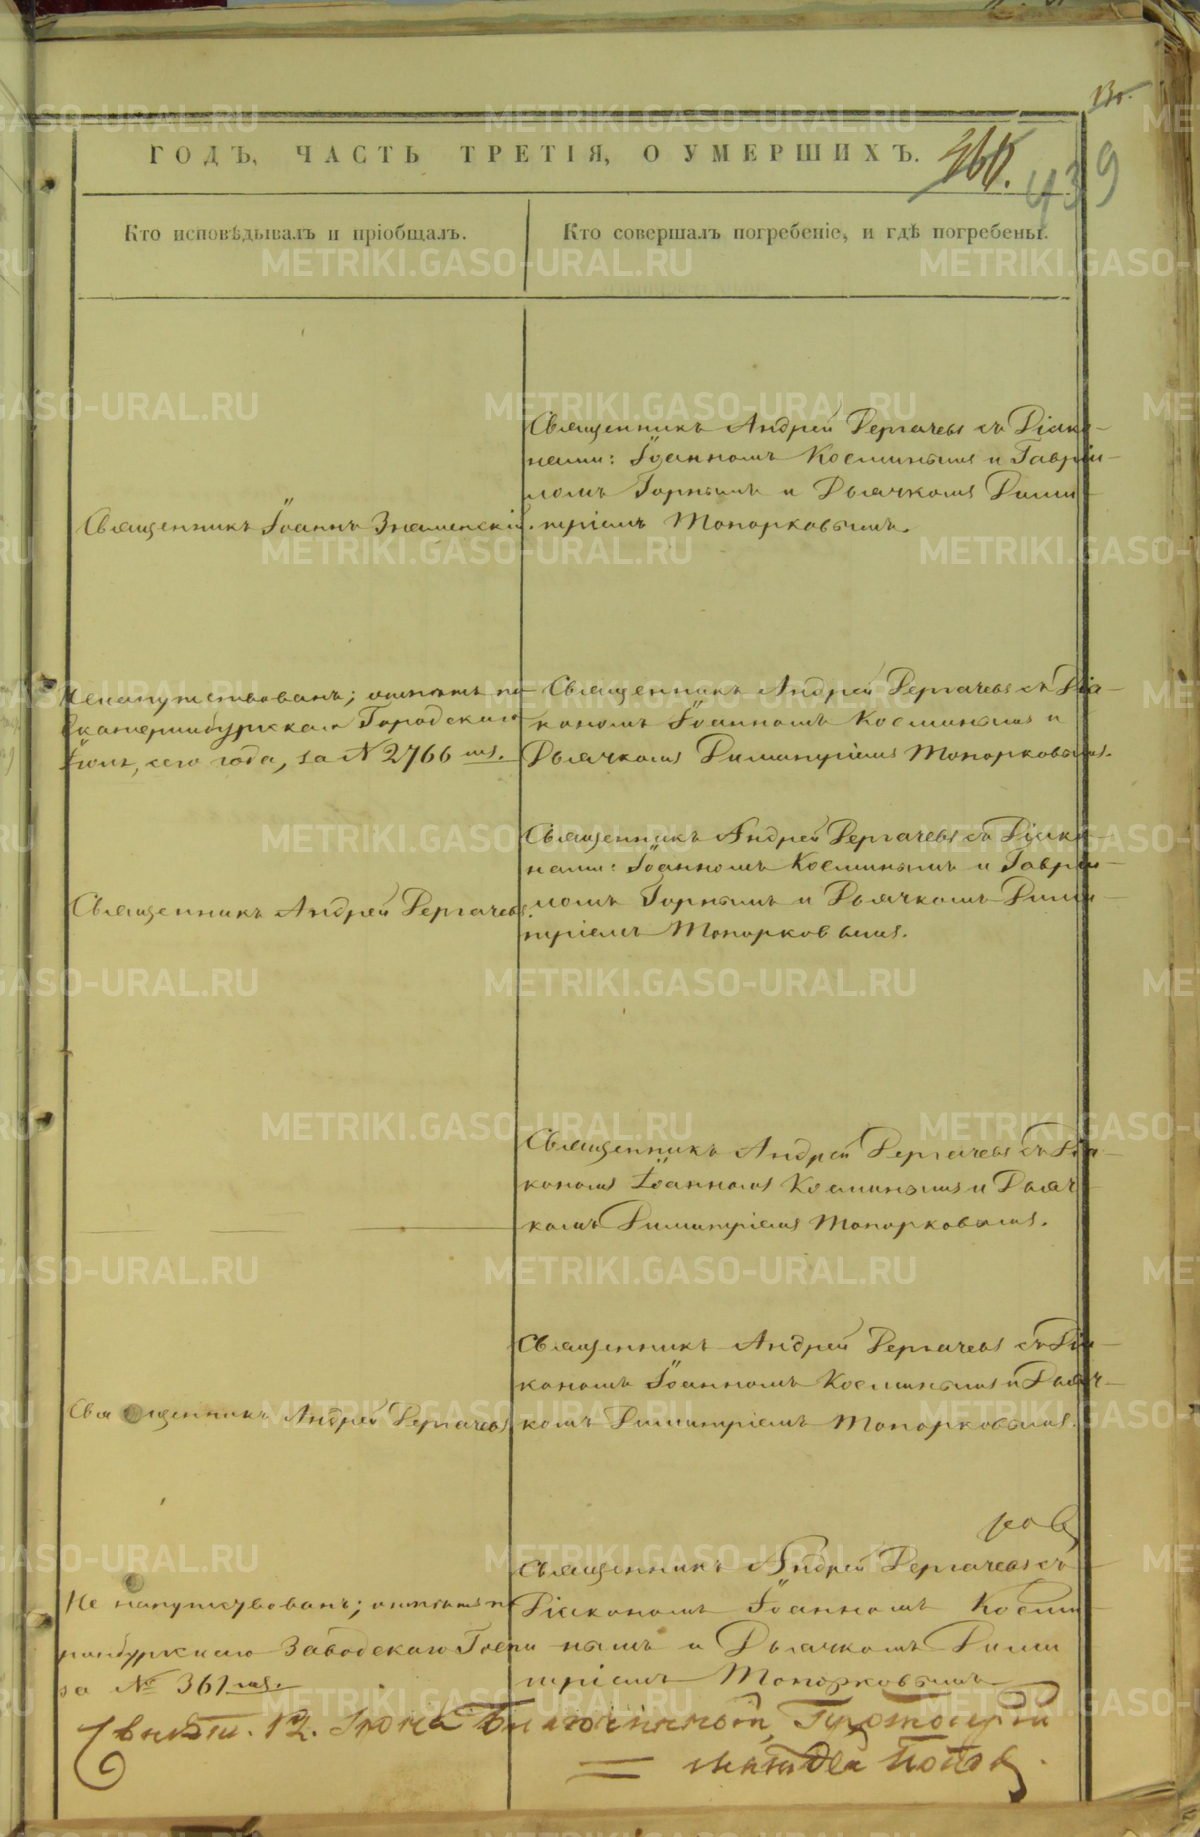 ГОДЪ, ЧАСТЬ ТРЕТІЯ, О УМЕРШИХЪ.
439
Кто исповѣдывалъ и пріобщалъ.
Кто совершалъ погребеніе, и гдѣ погребены.
Священникъ Іоаннъ Знаменскій.
Священникъ Андрей Дергачевъ съ Діако-
нами: Іоанномъ Косминымъ и Гаврии-
ломъ Горнымъ и Дьячкомъ Дими-
тріемъ Топорковымъ.
Ненапутствованъ; отпѣтъ по
Екатеринбургскаго Городскаго
сего года, за N 2766 мъ.
Священникъ Андрей Дергачевъ съ Діа-
кономъ Іоанномъ Косминымъ и
Дьячкомъ Димитріемъ Топорковымъ.
Священникъ Андрей Дергачевъ.
Священникъ Андрей Дергачевъ съ Діако-
нами: Іоанномъ Косминымъ и Гаврии-
ломъ Горнымъ и Дьячкомъ Дими-
тріемъ Топорковымъ.
Священникъ Андрей Дергачевъ съ Діа-
кономъ Іоанномъ Косминымъ и Дьяч-
комъ Димитріемъ Топорковымъ.
Священникъ Андрей Дергачевъ.
Священникъ Андрей Дергачевъ съ Діа-
кономъ Іоанномъ Косминымъ и Дьяч-
комъ Димитріемъ Топорковымъ.
Не напутствованъ; отпѣтъ п
ринбургскаго Заводскаго Госпи
за № 361 мъ.
Священникъ Андрей Дергачевъ съ
Діакономъ Іоанномъ Косми
нымъ и Дьячкомъ Дими
тріемъ Топорковымъ
12. Благочинный, Протоіерей
Попов
METRIKI.GASO-URAL.RU